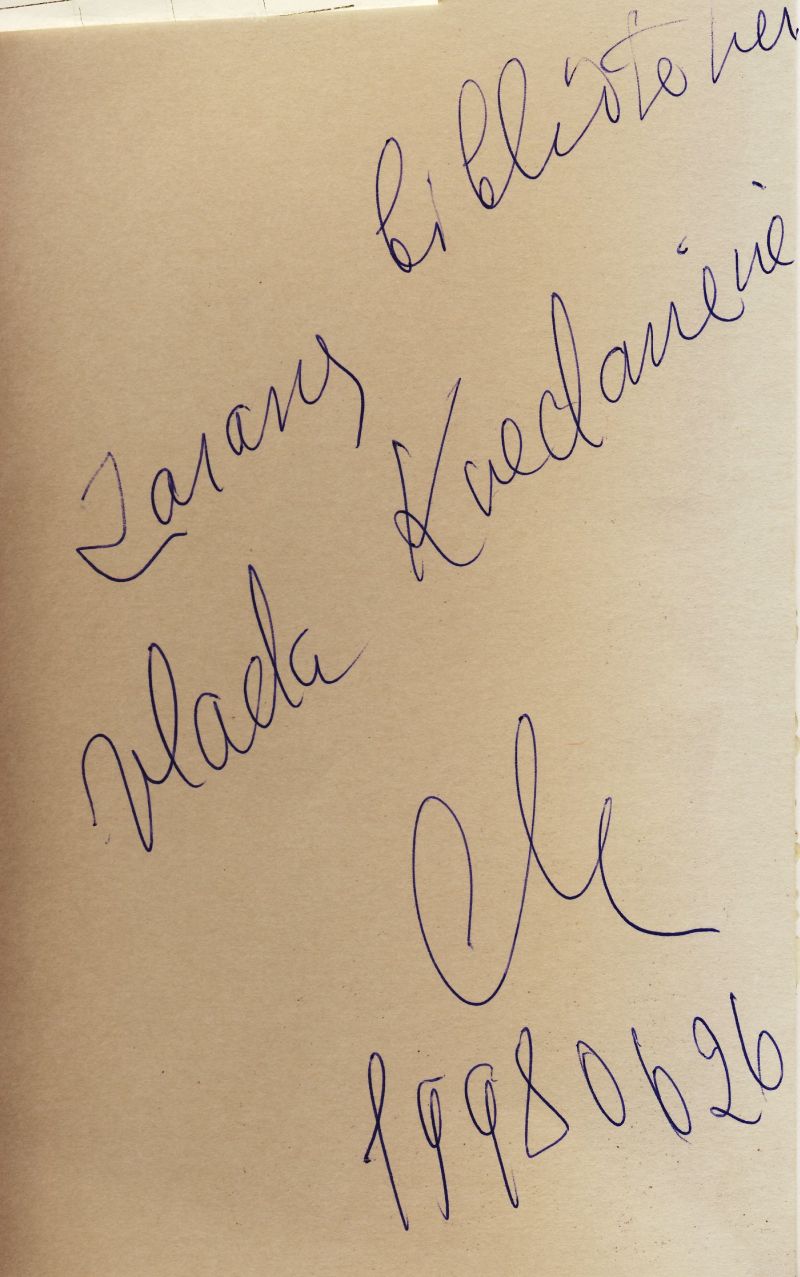 Zarasų bibliotekai
Vlada Kvedarienė
19980626